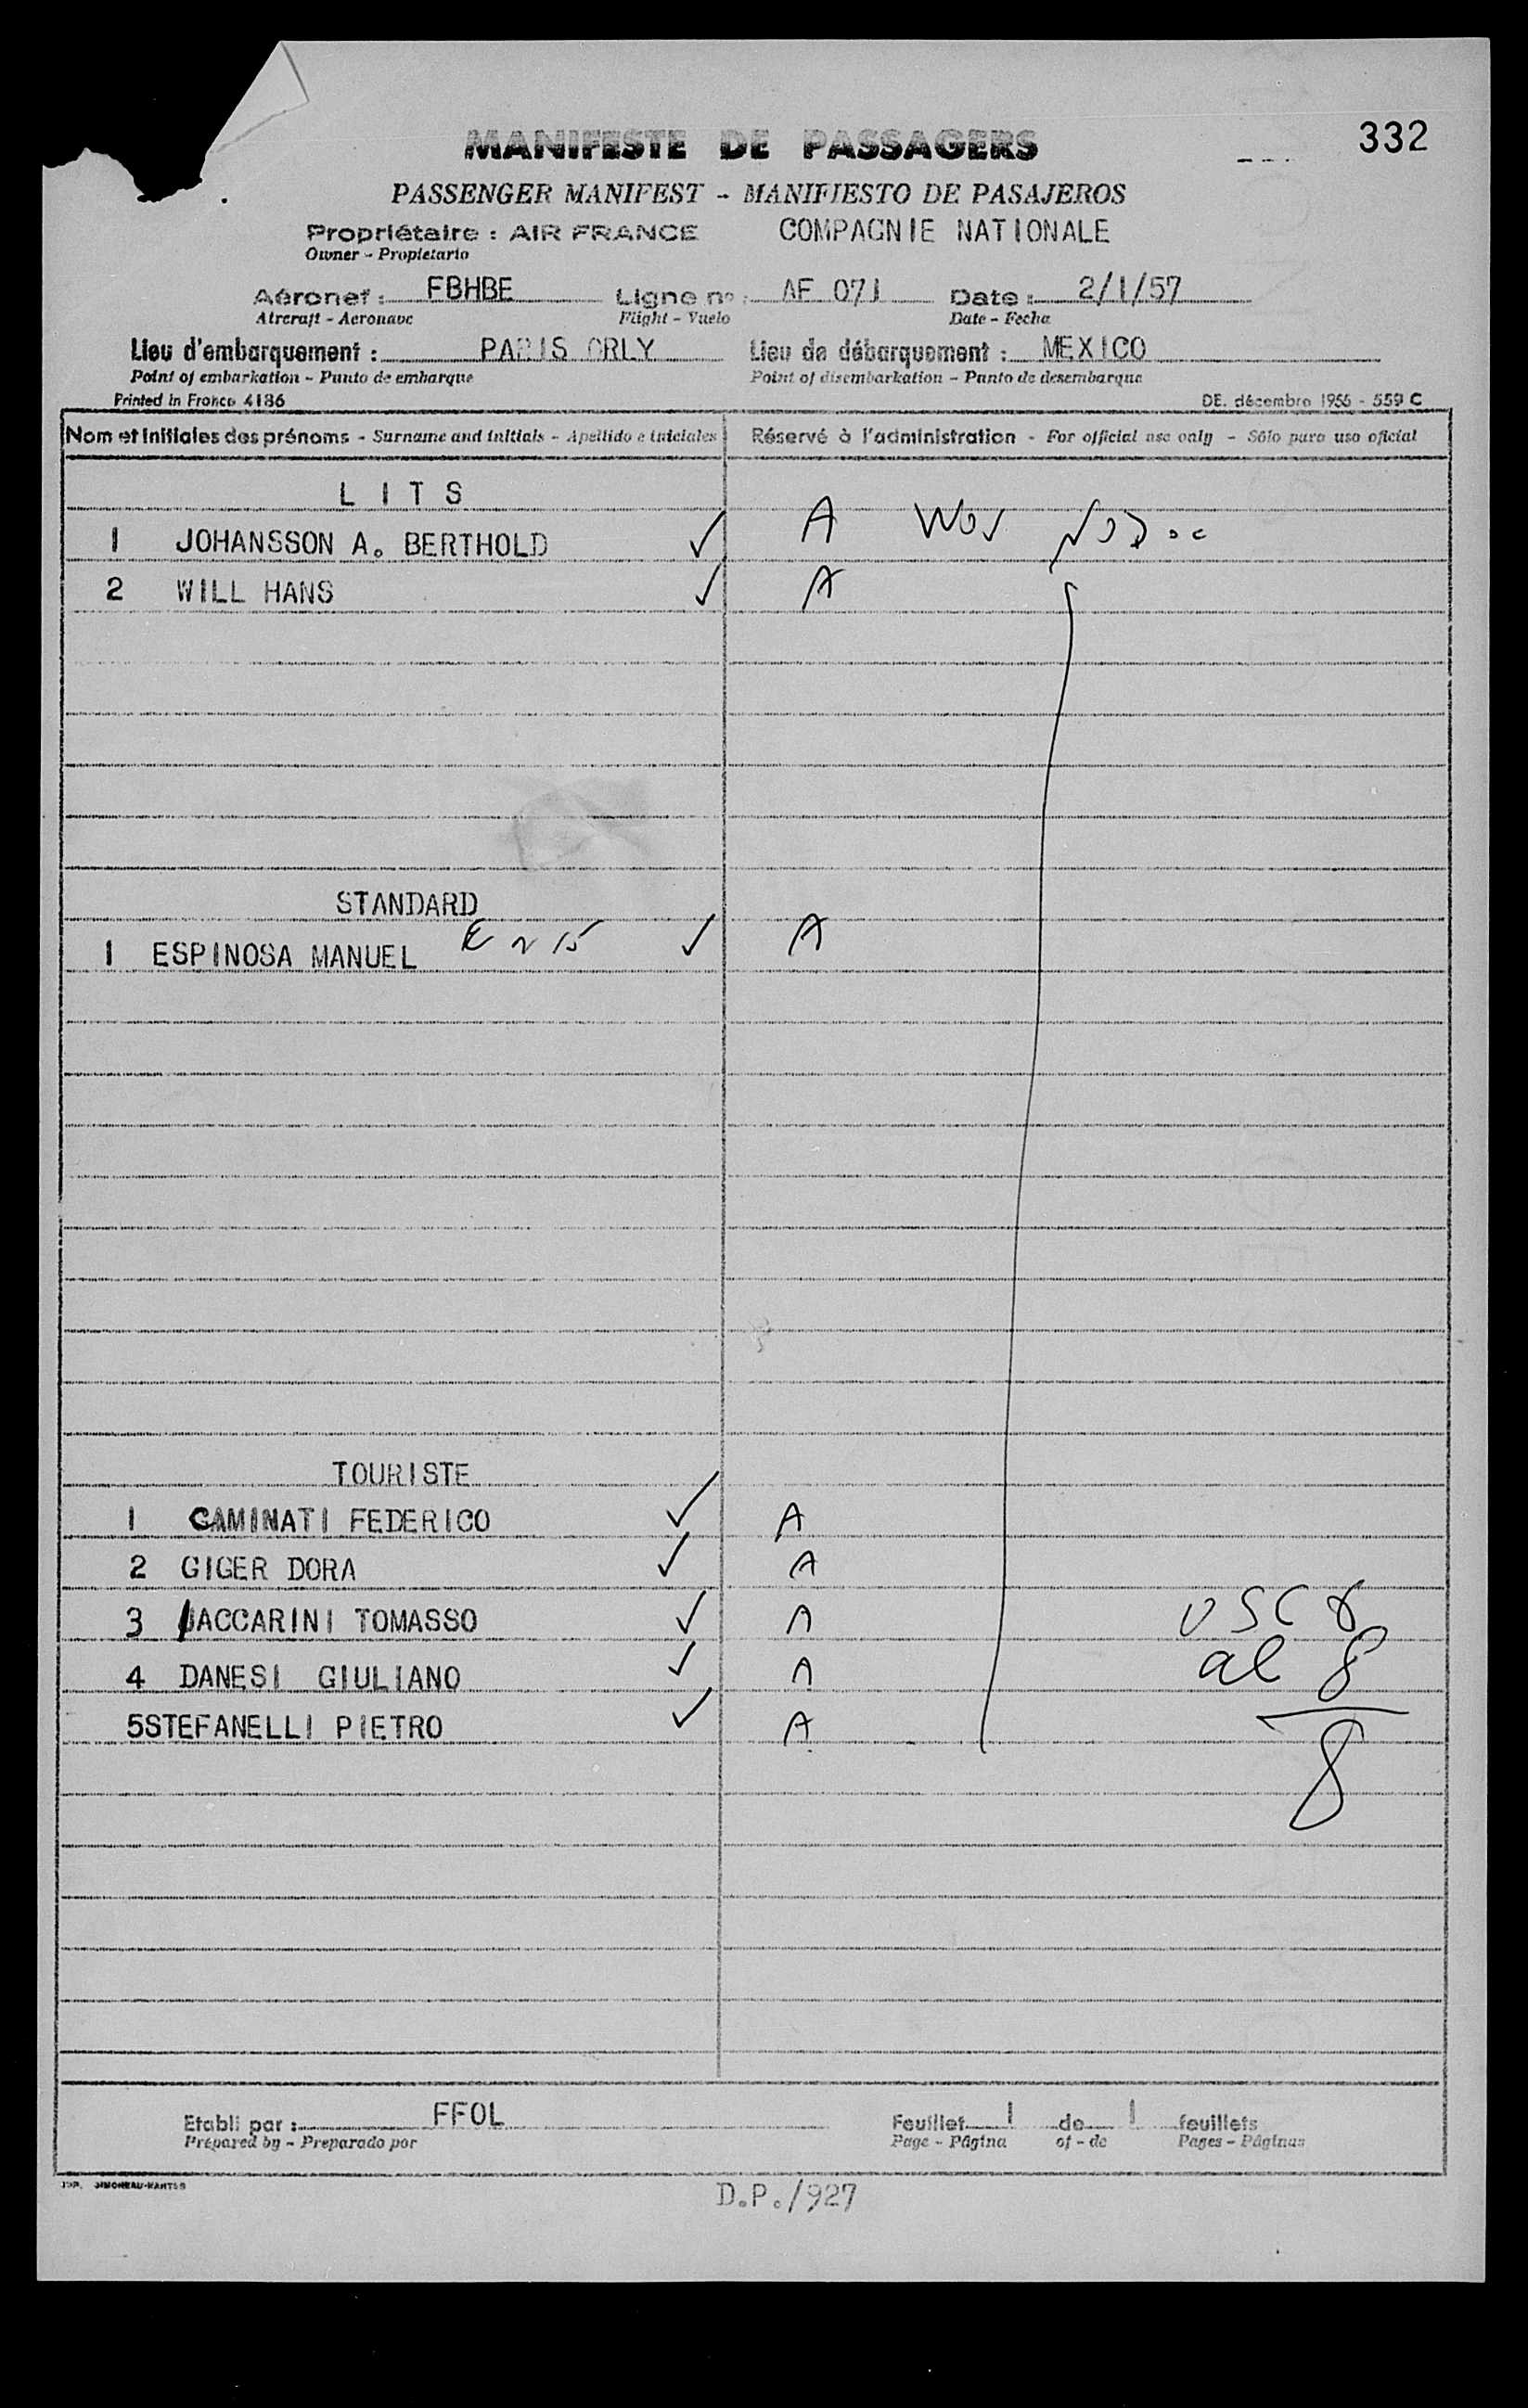 332
MANIFESTE DE PASSAGERS
PASSENGER MANIFEST - MANIFIESTO DE PASAJEROS
Propriétaire : AIR FRANCE COMPAGNIE NATIONALE
Owner - Propietario
Aéronef : FBHBE Ligne nº : AF 071 Date : 2/1/57
Aircraft - Aeronave Flight - Vuelo Date - Fecha
Lieu d'embarquement : PARIS ORLY Lieu de débarquement : MEXICO
Point of embarkation - Punto de embarque Point of disembarkation - Punto de desembarque
Printed in France 4186 DE. décembre 1955 - 559 C
Nom et initiales des prénoms - Surname and initials - Apellido e iniciales Réservé à l'administration - For official use only - Sólo para uso oficial
L I T S
1 JOHANSSON A. BERTHOLD ✓ A
2 WILL HANS ✓ A
STANDARD
1 ESPINOSA MANUEL ✓ A
TOURISTE
1 CAMINATI FEDERICO ✓ A
2 GIGER DORA ✓ A
3 ACCARINI TOMASSO ✓ A
4 DANESI GIULIANO ✓ A
al 8
5STEFANELLI PIETRO ✓ A
8
Etabli par : FFOL Feuillet 1 de 1 feuillets
Prepared by - Preparado por Page - Página of - de Pages - Páginas
D.P./927